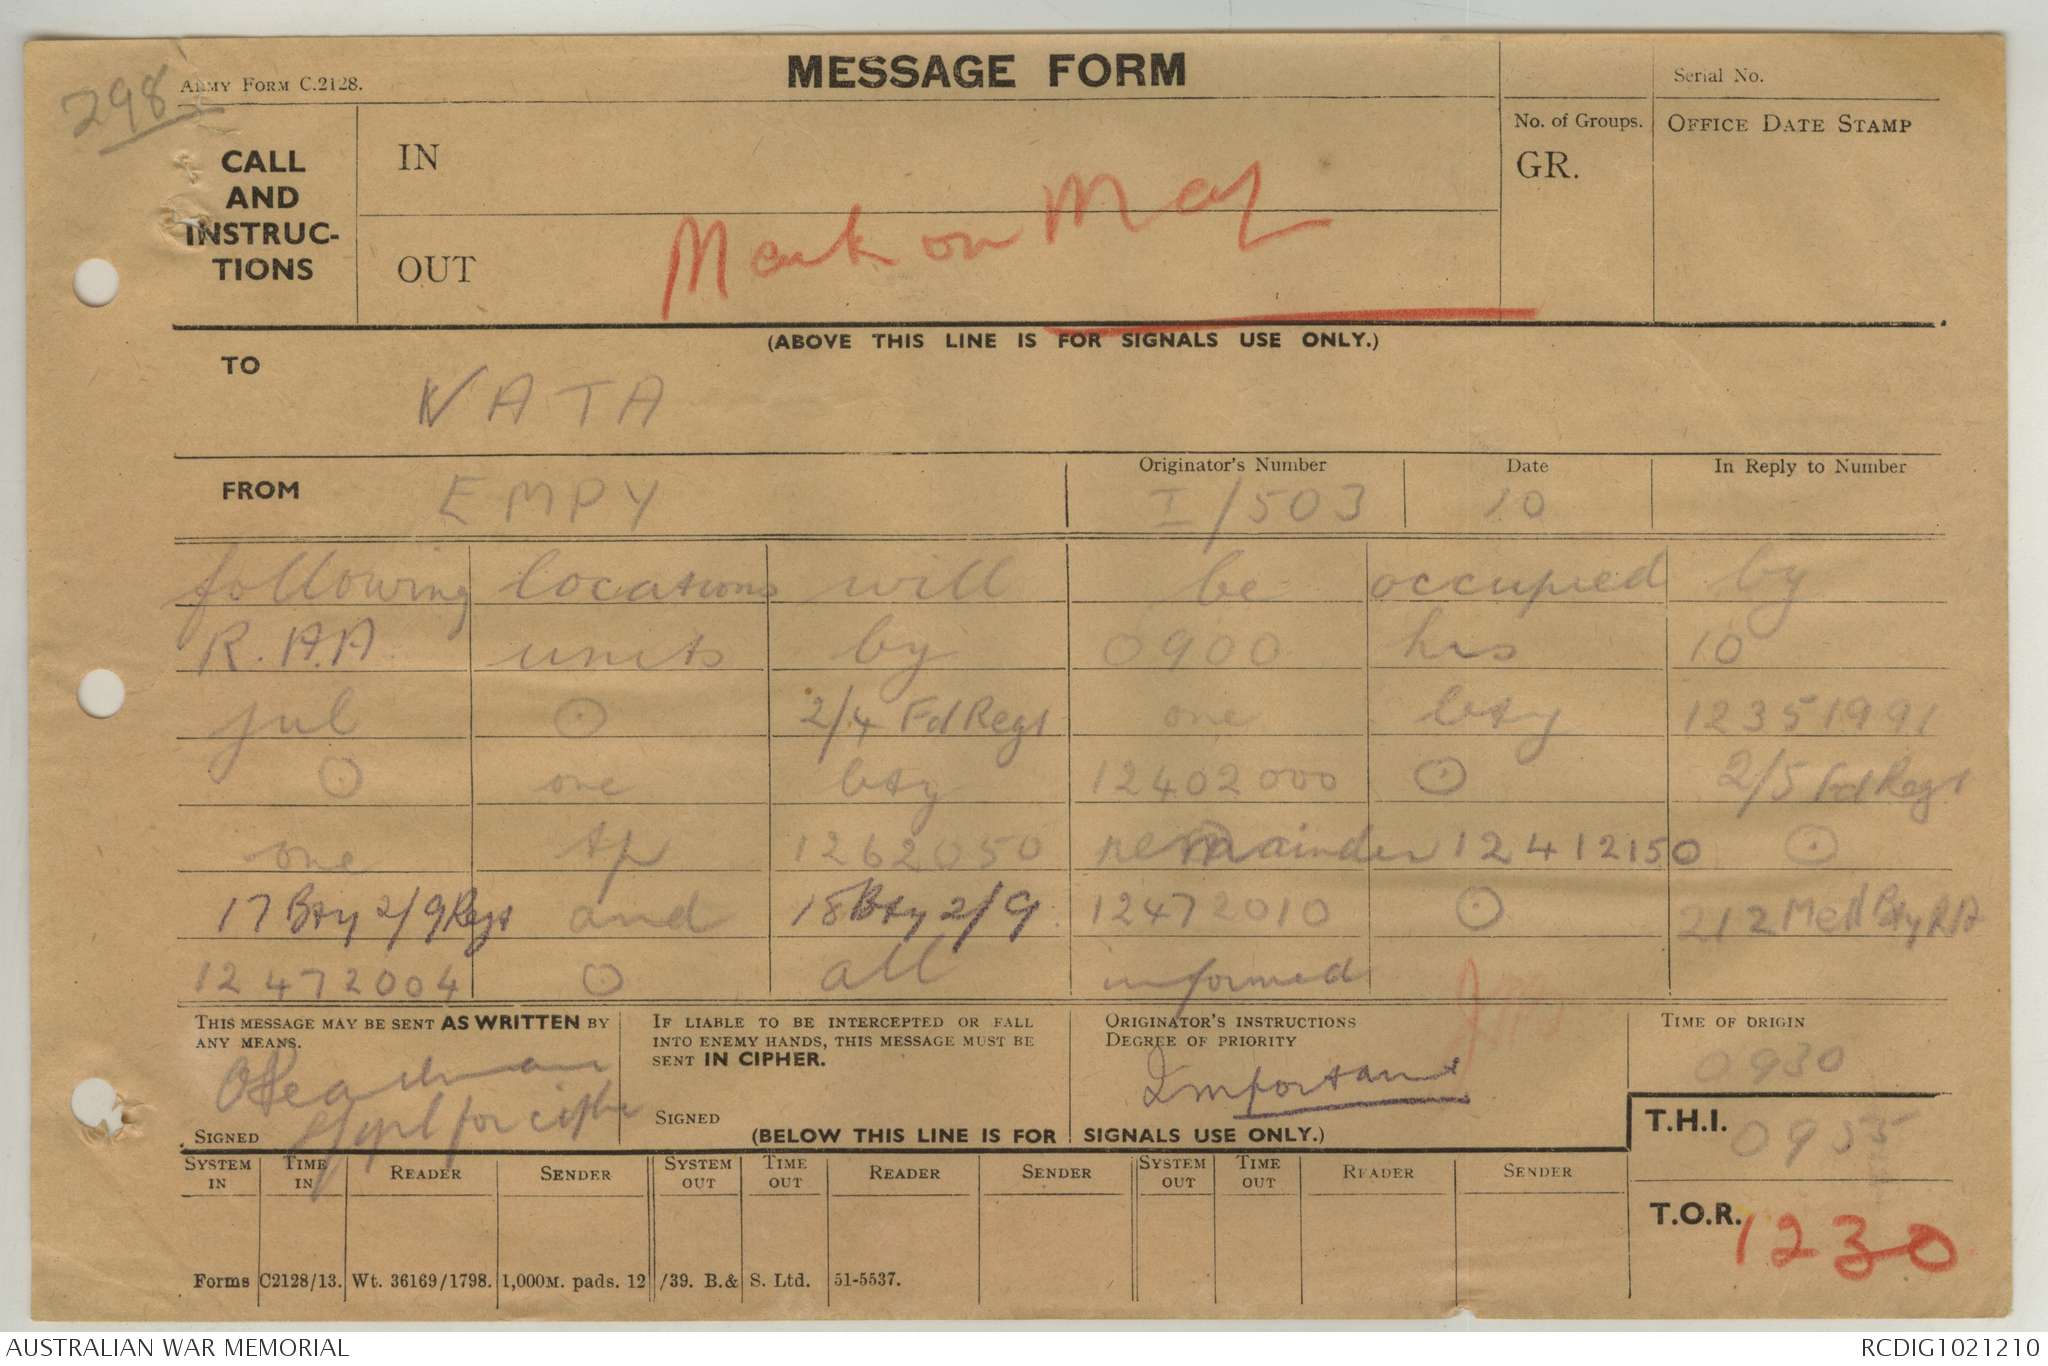 298
ARMY FORM C.2128.
MESSAGE FORM
Serial No.
CALL AND INSTRUC-TIONS
IN
OUT
No. of Groups.
GR.
OFFICE DATE STAMP
Mark on Map
(ABOVE THIS LINE IS FOR SIGNALS USE ONLY.)
TO
NATA
FROM
EMPY
Originator's Number
I/503
Date
10
In Reply to Number
following locations will be occupied by
R.A.A units by 0900 hrs 10
jul ⊙ 2/4 Fd Regt one bty 12351991
⊙ one bty 12402000 ⊙ 2/5 Fd Regt
one tp 1262050 remainder 12412150 ⊙
17 Bty 2/9 Regt and 18 Bty 2/9 12472010 ⊙ 212 Med Bty RA
12472004 ⊙ all informed
THIS MESSAGE MAY BE SENT AS WRITTEN BY ANY MEANS.
SIGNED
for cipher
IF LIABLE TO BE INTERCEPTED OR FALL INTO ENEMY HANDS, THIS MESSAGE MUST BE SENT IN CIPHER.
SIGNED
ORIGINATOR'S INSTRUCTIONS
DEGREE OF PRIORITY
Important
TIME OF ORIGIN
0930
T.H.I. 0955
(BELOW THIS LINE IS FOR SIGNALS USE ONLY.)
SYSTEM IN TIME IN READER SENDER SYSTEM OUT TIME OUT READER SENDER SYSTEM OUT TIME OUT READER SENDER
T.O.R. 1230
Forms C2128/13. Wt. 36169/1798. 1,000M. pads. 12/39. B.& S. Ltd. 51-5537.
AUSTRALIAN WAR MEMORIAL
RCDIG1021210